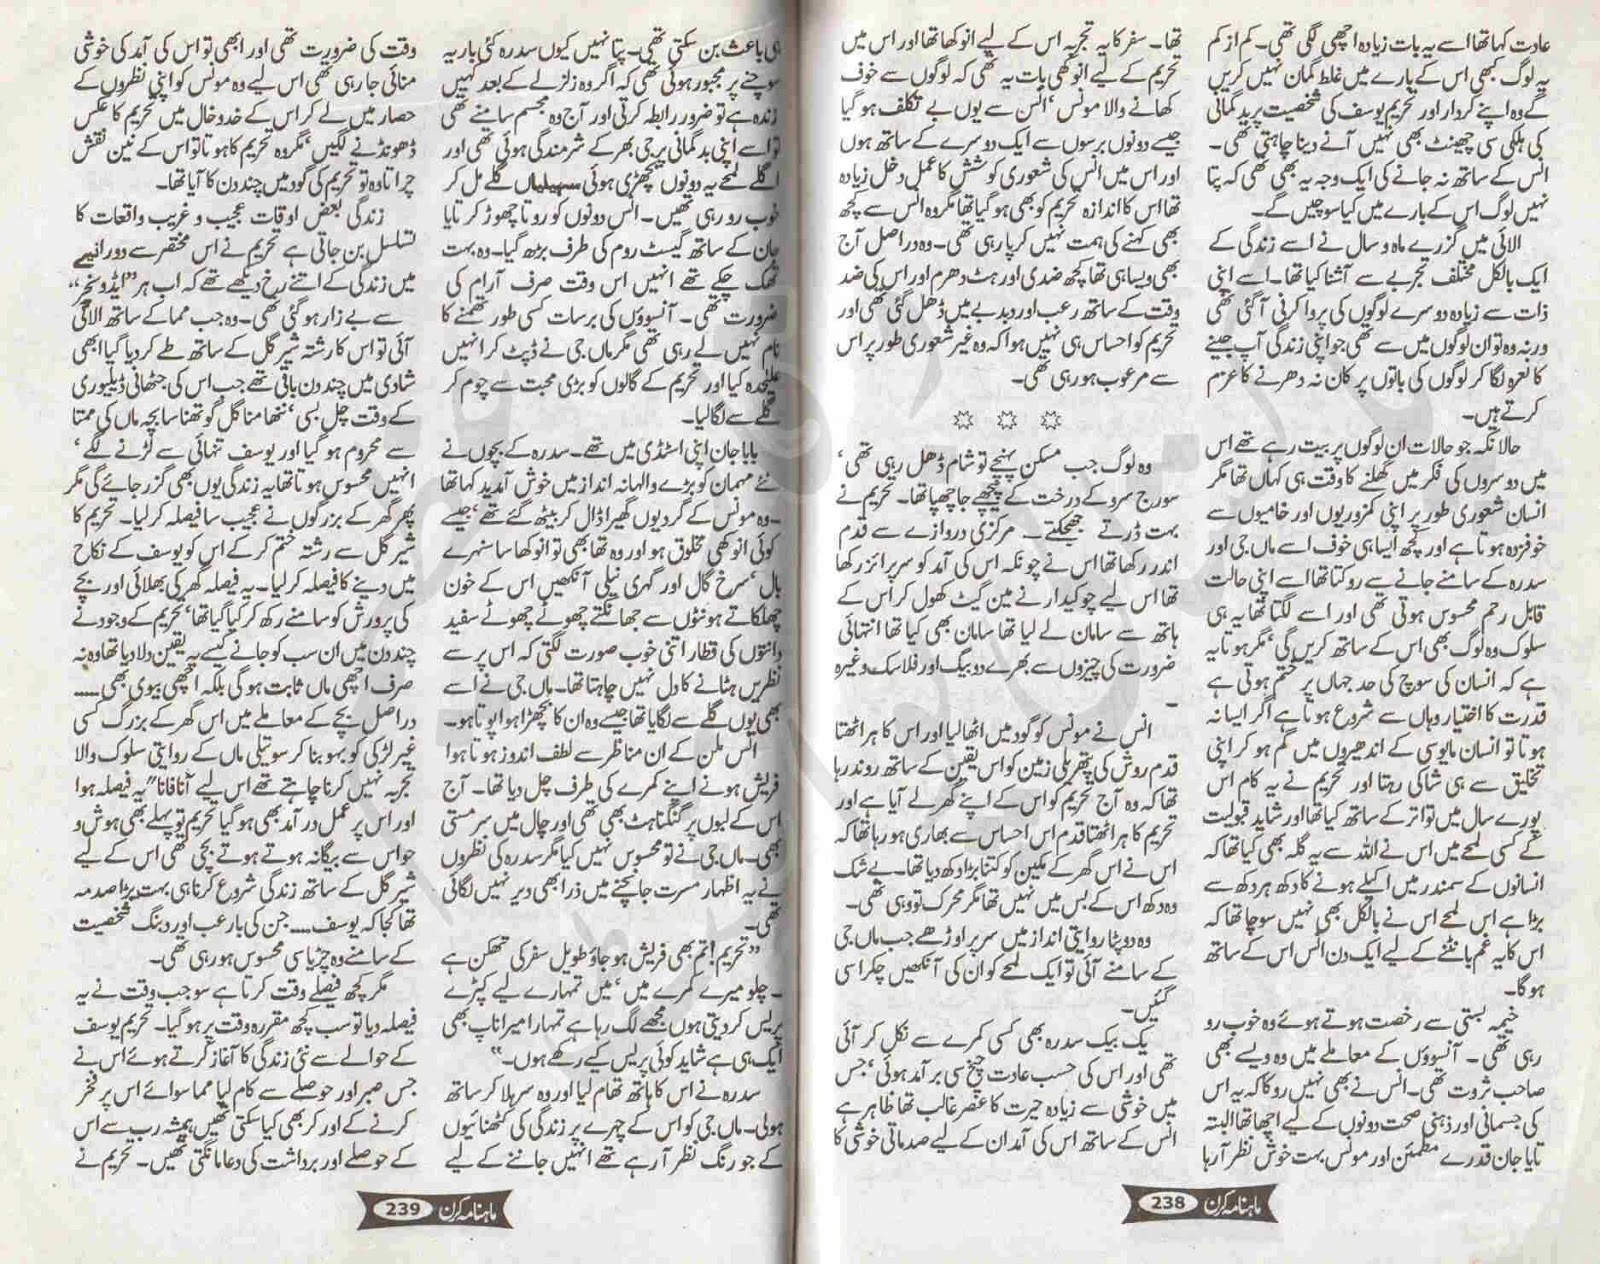 عادت کہا تھا اسے یہ بات زیادہ اچھی لگی تھی۔ کم از کم
یہ لوگ کبھی اس کے بارے میں غلط گمان نہیں کریں
گے وہ اپنے کردار اور تحریم یوسف کی شخصیت پر بدگمانی
کی ہلکی سی چھینٹ بھی نہیں آنے دینا چاہتی تھی۔
انس کے ساتھ نہ جانے کی ایک وجہ یہ بھی تھی کہ پتا
نہیں لوگ اس کے بارے میں کیا سوچیں گے۔
الائی میں گزرے ماہ و سال نے اسے زندگی کے
ایک بالکل مختلف تجربے سے آشنا کیا تھا۔ اسے اپنی
ذات سے زیادہ دوسرے لوگوں کی پروا کرنی آ گئی تھی
ورنہ وہ تو ان لوگوں میں سے تھی جو اپنی زندگی آپ جینے
کا نعرہ لگا کر لوگوں کی باتوں پر کان نہ دھرنے کا عزم
کرتے ہیں۔
حالانکہ جو حالات ان لوگوں پر بیت رہے تھے اس
میں دوسروں کی فکر میں گھلنے کا وقت ہی کہاں تھا مگر
انسان شعوری طور پر اپنی کمزوریوں اور خامیوں سے
خوفزدہ ہوتا ہے اور کچھ ایسا ہی خوف اسے ماں جی اور
سدرہ کے سامنے جانے سے روکتا تھا اسے اپنی حالت
قابل رحم محسوس ہوتی تھی اور اسے لگتا تھا یہ ہی
سلوک وہ لوگ بھی اس کے ساتھ کریں گی، مگر ہوتا یہ
ہے کہ انسان کی سوچ کی حد جہاں پر ختم ہوتی ہے
قدرت کا اختیار وہاں سے شروع ہوتا ہے اگر ایسا نہ
ہوتا تو انسان مایوسی کے اندھیروں میں گم ہو کر اپنی
تخلیق سے ہی شاکی رہتا اور تحریم نے یہ کام اس
پورے سال میں تواتر کے ساتھ کیا تھا اور شاید قبولیت
کے کسی لمحے میں اس نے اللہ سے یہ گلہ بھی کیا تھا کہ
انسانوں کے سمندر میں اکیلے ہونے کا دکھ ہر دکھ سے
بڑا ہے اس لمحے اس نے بالکل بھی نہیں سوچا تھا کہ
اس کا یہ غم بانٹنے کے لیے ایک دن انس اس کے ساتھ
ہوگا۔
خیمہ بستی سے رخصت ہوتے ہوئے وہ خوب رو
رہی تھی۔ آنسوؤں کے معاملے میں وہ ویسے بھی
صاحب ثروت تھی۔ انس نے بھی نہیں روکا کہ یہ اس
کی جسمانی اور ذہنی صحت دونوں کے لیے اچھا تھا البتہ
تایا جان قدرے مطمئن اور مونس بہت خوش نظر آ رہا
تھا۔ سفر کا یہ تجربہ اس کے لیے انوکھا تھا اور اس میں
تحریم کے لیے انوکھی بات یہ تھی کہ لوگوں سے خوف
کھانے والا مونس، انس سے یوں بے تکلف ہو گیا
جیسے دونوں برسوں سے ایک دوسرے کے ساتھ ہوں
اور اس میں انس کی شعوری کوشش کا عمل دخل زیادہ
تھا اس کا اندازہ تحریم کو بھی ہو گیا تھا مگر وہ انس سے کچھ
بھی کہنے کی ہمت نہیں کر پا رہی تھی۔ وہ دراصل آج
بھی ویسا ہی تھا کچھ ضدی اور ہٹ دھرم اور اس کی ضد
وقت کے ساتھ رعب اور دبدبے میں ڈھل گئی تھی اور
تحریم کو احساس ہی نہیں ہوا کہ وہ غیر شعوری طور پر اس
سے مرعوب ہو رہی تھی۔
وہ لوگ جب مسکن پہنچے تو شام ڈھل رہی تھی،
سورج سرو کے درخت کے پیچھے جا چھپا تھا۔ تحریم نے
بہت ڈرتے جھجکتے۔ مرکزی دروازے سے قدم
اندر رکھا تھا اس نے چونکہ اس کی آمد کو سرپرائز رکھا
تھا اس لیے چوکیدار نے مین گیٹ کھول کر اس کے
ہاتھ سے سامان لے لیا تھا سامان بھی کیا تھا انتہائی
ضرورت کی چیزوں سے بھرے دو بیگ اور فلاسک وغیرہ
۔
انس نے مونس کو گود میں اٹھا لیا اور اس کا ہر اٹھتا
قدم روش کی پتھریلی زمین کو اس یقین کے ساتھ روند رہا
تھا کہ وہ آج تحریم کو اس کے اپنے گھر لے آیا ہے اور
تحریم کا ہر اٹھتا قدم اس احساس سے بھاری ہو رہا تھا کہ
اس نے اس گھر کے مکین کو کتنا بڑا دکھ دیا تھا۔ بے شک
وہ دکھ اس کے بس میں نہیں تھا مگر محرک تو وہی تھی۔
وہ دوپٹا روایتی انداز میں سر پر اوڑھے جب ماں جی
کے سامنے آئی تو ایک لمحے کو ان کی آنکھیں چکرا سی
گئیں۔
یک بیک سدرہ بھی کسی کمرے سے نکل کر آئی
تھی اور اس کی حسب عادت چیخ سی برآمد ہوئی، جس
میں خوشی سے زیادہ حیرت کا عنصر غالب تھا ظاہر ہے
انس کے ساتھ اس کی آمد ان کے لیے صدماتی خوشی کا
ماہنامہ کرن 238
ہی باعث بن سکتی تھی۔ پتا نہیں کیوں سدرہ کئی بار یہ
سوچنے پر مجبور ہوئی تھی کہ اگر وہ زلزلے کے بعد کہیں
زندہ ہے تو ضرور رابطہ کرتی اور آج وہ مجسم سامنے تھی
تو اسے اپنی بدگمانی پر جی بھر کے شرمندگی ہوئی تھی اور
اگلے لمحے یہ دونوں بچھڑی ہوئی سہیلیاں گلے مل کر
خوب رو رہی تھیں۔ انس دونوں کو روتا چھوڑ کر تایا
جان کے ساتھ گیسٹ روم کی طرف بڑھ گیا۔ وہ بہت
تھک چکے تھے انہیں اس وقت صرف آرام کی
ضرورت تھی۔ آنسوؤں کی برسات کسی طور تھمنے کا
نام نہیں لے رہی تھی مگر ماں جی نے ڈپٹ کر انہیں
علیحدہ کیا اور تحریم کے گالوں کو بڑی محبت سے چوم کر
گلے سے لگا لیا۔
بابا جان اپنی اسٹڈی میں تھے۔ سدرہ کے بچوں نے
نئے مہمان کو بڑے والہانہ انداز میں خوش آمدید کہا تھا
۔ وہ مونس کے گرد یوں گھیرا ڈال کر بیٹھ گئے تھے، جیسے
کوئی انوکھی مخلوق ہو اور وہ تھا بھی تو انوکھا سا سنہرے
بال، سرخ گال اور گہری نیلی آنکھیں اس کے خون
چھلکاتے ہونٹوں سے جھانکتے چھوٹے چھوٹے سفید
دانتوں کی قطار اتنی خوب صورت لگتی کہ اس پر سے
نظریں ہٹانے کا دل نہیں چاہتا تھا۔ ماں جی نے اسے
بھی یوں گلے سے لگایا تھا جیسے وہ ان کا بچھڑا ہوا پوتا ہو۔
انس ملن کے ان مناظر سے لطف اندوز ہوتا ہوا
فریش ہونے اپنے کمرے کی طرف چل دیا تھا۔ آج
اس کے لبوں پر گنگناہٹ بھی تھی اور چال میں سرمستی
بھی۔ ماں جی نے تو محسوس نہیں کیا مگر سدرہ کی نظروں
نے یہ اظہار مسرت جانچنے میں ذرا بھی دیر نہیں لگائی
تھی۔
”تحریم! تم بھی فریش ہو جاؤ طویل سفر کی تھکن ہے
۔ چلو میرے کمرے میں، میں تمہارے لیے کپڑے
پریس کر دیتی ہوں مجھے لگ رہا ہے تمہارا میرا ناپ بھی
ایک ہی ہے شاید کوئی پریس کیے رکھے ہوں۔“
سدرہ نے اس کا ہاتھ تھام لیا اور وہ سر ہلا کر ساتھ
ہولی۔ ماں جی کو اس کے چہرے پر زندگی کی کٹھنائیوں
کے جو رنگ نظر آ رہے تھے انہیں جاننے کے لیے
وقت کی ضرورت تھی اور ابھی تو اس کی آمد کی خوشی
منائی جا رہی تھی اس لیے وہ مونس کو اپنی نظروں کے
حصار میں لے کر اس کے خدوخال میں تحریم کا عکس
ڈھونڈنے لگیں، مگر وہ تحریم کا ہوتا تو اس کے نین نقش
چراتا وہ تو تحریم کی گود میں چند دن کا آیا تھا۔
زندگی بعض اوقات عجیب و غریب واقعات کا
تسلسل بن جاتی ہے تحریم نے اس مختصر سے دورانیے
میں زندگی کے اتنے رخ دیکھے تھے کہ اب ہر ”ایڈونچر“
سے بے زار ہو گئی تھی۔ وہ جب مما کے ساتھ الائی
آئی تو اس کا رشتہ شیر گل کے ساتھ طے کر دیا گیا ابھی
شادی میں چند دن باقی تھے جب اس کی جٹھانی ڈیلیوری
کے وقت چل بسی، ننھا منا گل گوتھنا سا بچہ ماں کی ممتا
سے محروم ہو گیا اور یوسف تنہائی سے لڑنے لگے،
انہیں محسوس ہوتا تھا یہ زندگی یوں بھی گزر جائے گی مگر
پھر گھر کے بزرگوں نے عجیب سا فیصلہ کر لیا۔ تحریم کا
شیر گل سے رشتہ ختم کر کے اس کو یوسف کے نکاح
میں دینے کا فیصلہ کر لیا۔ یہ فیصلہ گھر کی بھلائی اور بچے
کی پرورش کو سامنے رکھ کر کیا گیا تھا، تحریم کے وجود نے
چند دن میں ان سب کو جانے کیسے یہ یقین دلا دیا تھا وہ نہ
صرف اچھی ماں ثابت ہوگی بلکہ اچھی بیوی بھی .....
دراصل بچے کے معاملے میں اس گھر کے بزرگ کسی
غیر لڑکی کو بہو بنا کر سوتیلی ماں کے روایتی سلوک والا
تجربہ نہیں کرنا چاہتے تھے اس لیے آناً فاناً یہ فیصلہ ہوا
اور اس پر عمل درآمد بھی ہو گیا تحریم تو پہلے بھی ہوش و
حواس سے بیگانہ ہوتے ہوتے بچی تھی اس کے لیے
شیر گل کے ساتھ زندگی شروع کرنا ہی بہت بڑا صدمہ
تھا کجا کہ یوسف ..... جن کی بارعب اور دبنگ شخصیت
کے سامنے وہ چڑیا سی محسوس ہو رہی تھی۔
مگر کچھ فیصلے وقت کرتا ہے سو جب وقت نے یہ
فیصلہ دیا تو سب کچھ مقررہ وقت پر ہو گیا۔ تحریم یوسف
کے حوالے سے نئی زندگی کا آغاز کرتے ہوئے اس نے
جس صبر اور حوصلے سے کام لیا مما سوائے اس پر فخر
کرنے کے اور کر بھی کیا سکتی تھیں ہمیشہ رب سے اس
کے حوصلے اور برداشت کی دعا مانگتی تھیں۔ تحریم نے
ماہنامہ کرن 239